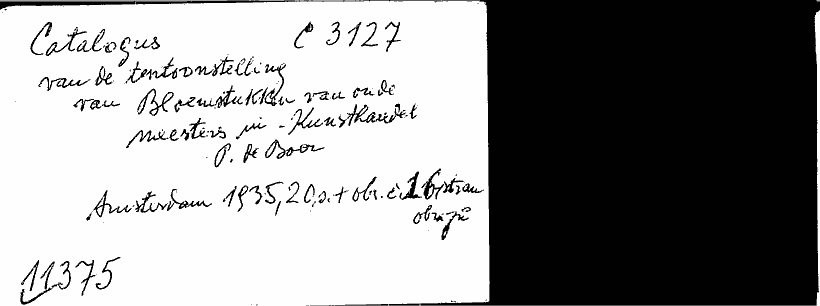 Catalogus C 3127
van de tentoonstelling
van Bloemstukken van oude
meesters in - Kunsthandel
P. de Boer
Amsterdam 1935, 20 s. + obr. č. 16 stran
obrazů
11375